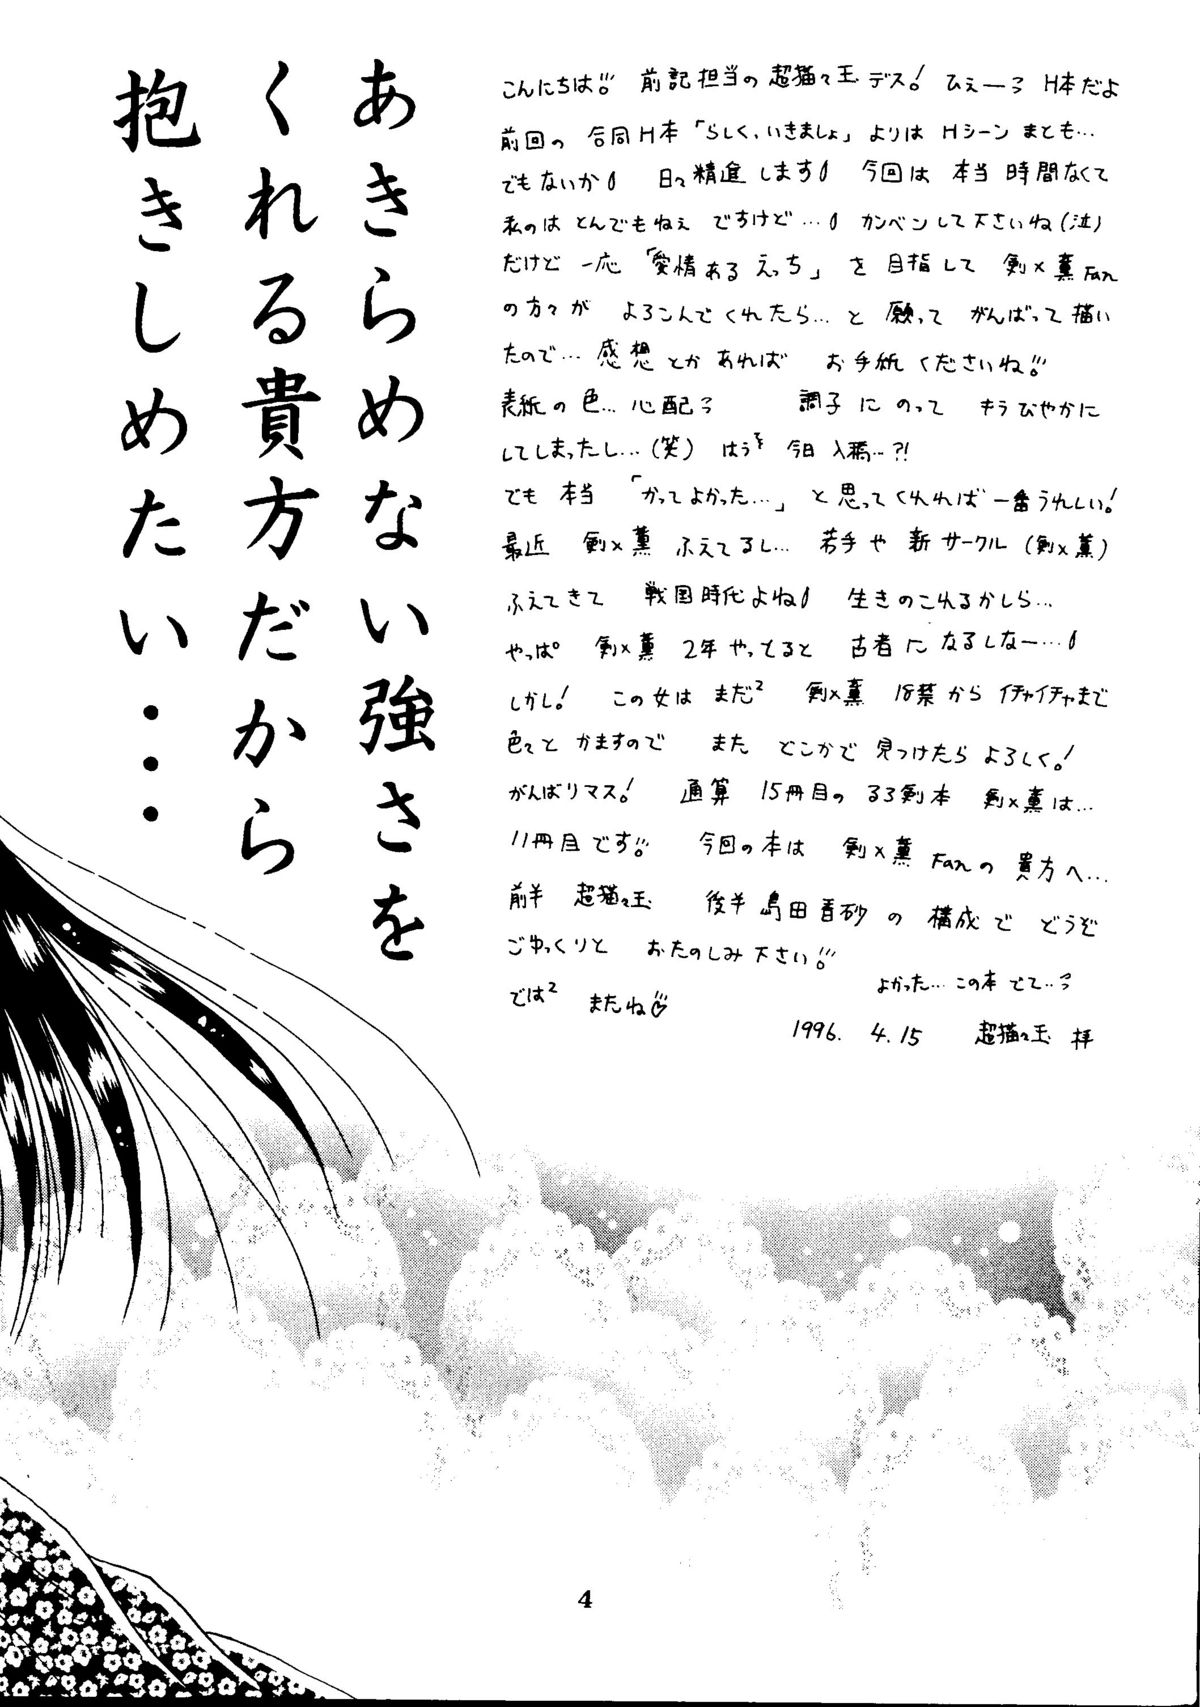 あきらめない強さを
くれる貴方だから
抱きしめたい・・・
こんにちは!! 前記担当の超猫々玉デス! ひぇーっ H本だよ
前回の 合同H本「らしく、いきましょ」よりは Hシーン まとも…
でもないか 日々精進します 今回は 本当 時間なくて
私のは とんでもねぇ ですけど… カンベンして下さいね(泣)
だけど 一応 「愛情ある えっち」を 目指して 剣×薫 Fan
の方々が よろこんでくれたら… と 願って がんばって描い
たので… 感想とか あれば お手紙くださいね!!
表紙の色… 心配っ 調子にのって キラびやかに
してしまったし…(笑) はうを 今日 入稿…?!
でも 本当 「かってよかった…」と思ってくれれば 一番うれしい!
最近 剣×薫 ふえてるし… 若手や 新サークル(剣×薫)
ふえてきて 戦国時代よね 生きのこれるかしら…
やっぱ 剣×薫 2年やってると 古者に なるしなー…
しかし! この女は まだ² 剣×薫 18禁から イチャイチャまで
色々と かますので また どこかで 見つけたら よろしく!
がんばりマス! 通算 15冊目の るろ剣本 剣×薫は…
11冊目です!! 今回の本は 剣×薫 Fanの 貴方へ…
前半 超猫々玉 後半 島田香砂の 構成で どうぞ
ごゆっくりと おたのしみ下さい!!
よかった… この本 でて…っ
では² またね!!♡
1996. 4.15 超猫々玉 拝
4